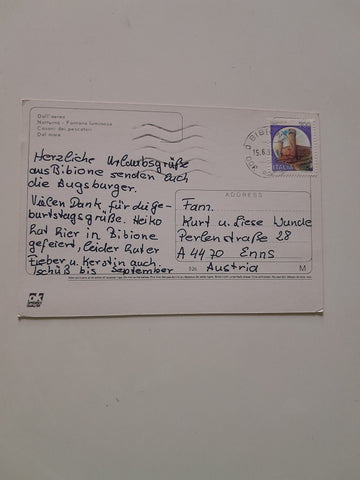 Dall'aereo
Notturno - Fontana luminosa
Casoni dei pescatori
Dal mare
ITALIA
15.6.
Herzliche Urlaubsgrüße
aus Bibione senden Euch
die Augsburger.
Vielen Dank für die Ge-
burtstagsgrüße. Heiko
hat hier in Bibione
gefeiert, leider unter
Fieber u. Kerstin auch.
Tschüß bis September
ADDRESS
Fam.
Kurt u. Liese Wunde
Perlenstraße 28
A 4470 Enns
Austria
326
M
ok